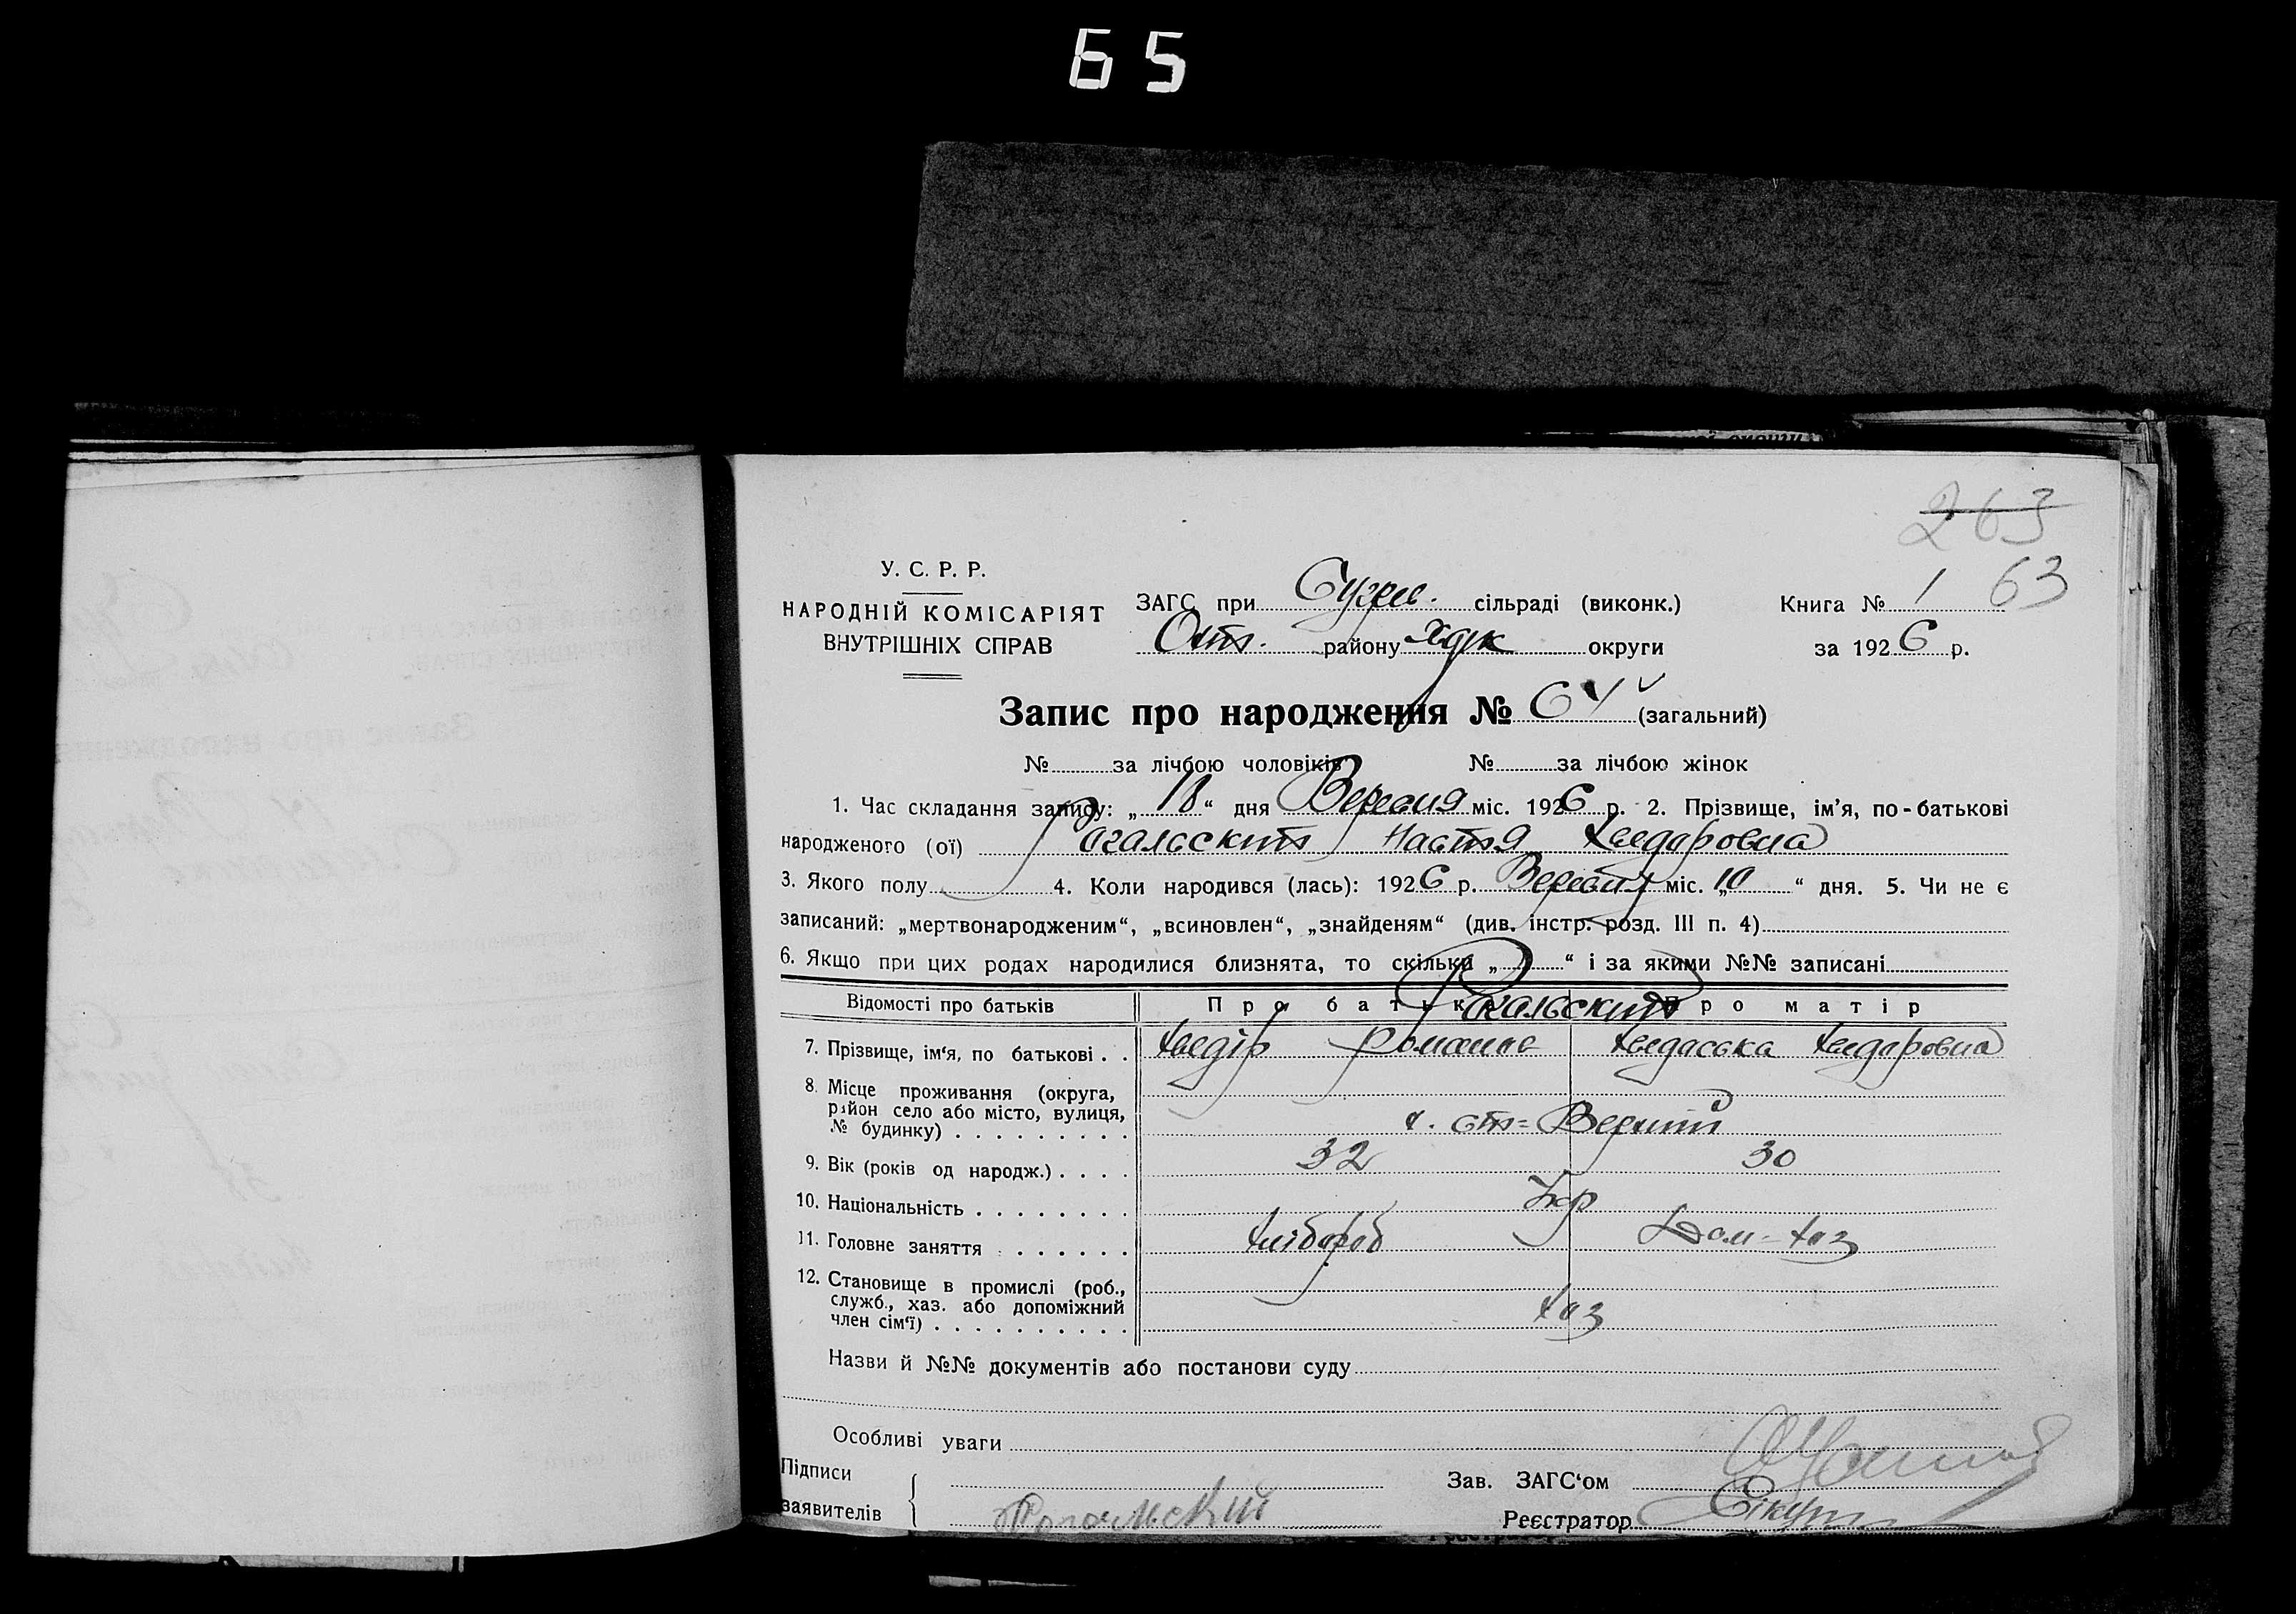 65
263
У. С. Р. Р.
НАРОДНІЙ КОМІСАРІЯТ
ВНУТРІШНІХ СПРАВ
ЗАГС при сільраді (виконк.)
району округи
Книга № 1 63
за 1926 р.
Запис про народження № 64 (загальний)
№ за лічбою чоловіків № за лічбою жінок
1. Час складання запису: „18“ дня Вересня міс. 1926 р. 2. Прізвище, ім'я, по-батькові
народженого (ої) Рогальскит Настя Хведоровна
3. Якого полу 4. Коли народився (лась): 1926 р. Вересня міс. „10“ дня. 5. Чи не є
записаний: „мертвонародженим“, „всиновлен“, „знайденям“ (див. інстр. розд. III п. 4)
6. Якщо при цих родах народилися близнята, то скільки „ “ і за якими №№ записані
Відомості про батьків Про батька Про матір
Рогальскит
7. Прізвище, ім'я, по батькові . . Хведір Романов Хведоська Хведоровна
8. Місце проживання (округа,
район село або місто, вулиця,
№ будинку) . . . . . . . . .
9. Вік (років од народж.) . . . . 32 30
10. Національність . . . . . . . . Укр
11. Головне заняття . . . . . . . Хлібороб Дом-хоз
12. Становище в промислі (роб.,
служб., хаз. або допоміжний
член сім'ї) . . . . . . . . . . хоз
Назви й №№ документів або постанови суду
Особливі уваги
Підписи
заявителів Рогальский
Зав. ЗАГС'ом
Реєстратор